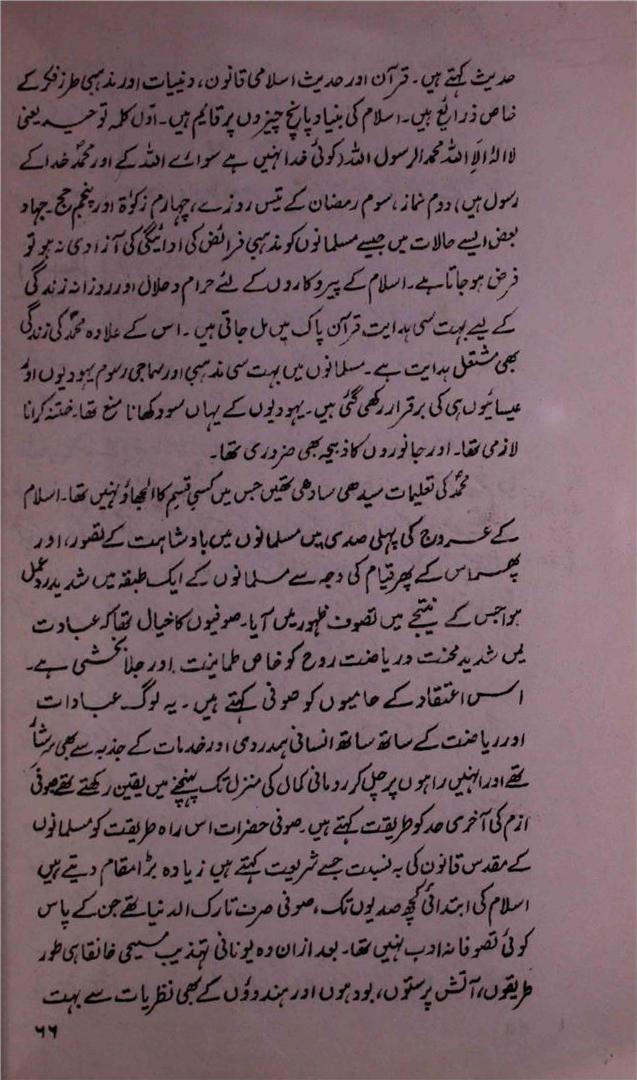 حدیث کہتے ہیں۔ قرآن اور حدیث اسلامی قانون، دینیات اور مذہبی طرز فکر کے
خاص ذرائع ہیں۔ اسلام کی بنیاد پانچ چیزوں پر قائیم ہیں۔ اوّل کلمہ توحید یعنی
لا الہٰ الا اللہ محمد الرسول اللہ (کوئی خدا نہیں ہے سوائے اللہ کے اور محمدؐ خدا کے
رسول ہیں) دوم نماز، سوم رمضان کے تیس روزے، چہارم زکوٰۃ اور پنجم حج۔ جہاد
بعض ایسے حالات میں جیسے مسلمانوں کو مذہبی فرائض کی ادائیگی کی آزادی نہ ہو تو
فرض ہو جاتا ہے۔ اسلام کے پیروکاروں کے لئے حرام و حلال اور روزانہ زندگی
کے لیے بہت سی ہدایت قرآن پاک میں مل جاتی ہیں۔ اس کے علاوہ محمدؐ کی زندگی
بھی مشتعل ہدایت ہے۔ مسلمانوں میں بہت سی مذہبی اور سماجی رسوم یہودیوں اور
عیسائیوں ہی کی برقرار رکھی گئی ہیں۔ یہودیوں کے یہاں سود کھانا منع تھا۔ ختنہ کرانا
لازمی تھا۔ اور جانوروں کا ذبیحہ بھی ضروری تھا۔
محمدؐ کی تعلیمات سیدھی سادھی تھیں جس میں کسی قسم کا الجھاؤ نہیں تھا۔ اسلام
کے عروج کی پہلی صدی میں مسلمانوں میں بادشاہت کے تصور، اور
پھر اس کے پھر قیام کی وجہ سے مسلمانوں کے ایک طبقہ میں شدید ردعمل
ہوا جس کے نتیجے میں تصوف ظہور میں آیا۔ صوفیوں کا خیال تھا کہ عبادت
میں شدید محنت و ریاضت روح کو خاص طمانیت اور جلا بخشی ہے۔
اس اعتقاد کے حامیوں کو صوفی کہتے ہیں۔ یہ لوگ عبادات
اور ریاضت کے ساتھ ساتھ انسانی ہمدردی اور خدمات کے جذبہ سے بھی سرشار
تھے اور انہیں راہوں پر چل کر روحانی کمال کی منزل تک پہنچنے میں یقین رکھتے تھے صوفی
ازم کی آخری حد کو طریقت کہتے ہیں۔ صوفی حضرات اس راہ طریقت کو مسلمانوں
کے مقدس قانون کی بہ نسبت جسے شریعت کہتے ہیں زیادہ بڑا مقام دیتے ہیں
اسلام کی ابتدائی کچھ صدیوں تک، صوفی صرف تارک الدنیا تھے جن کے پاس
کوئی تصوفانہ ادب نہیں تھا۔ بعد ازان وہ یونانی تہذیب مسیحی خانقاہی طور
طریقوں، آتش پرستوں، بودھوں اور ہندوؤں کے بھی نظریات سے بہت
۶۶